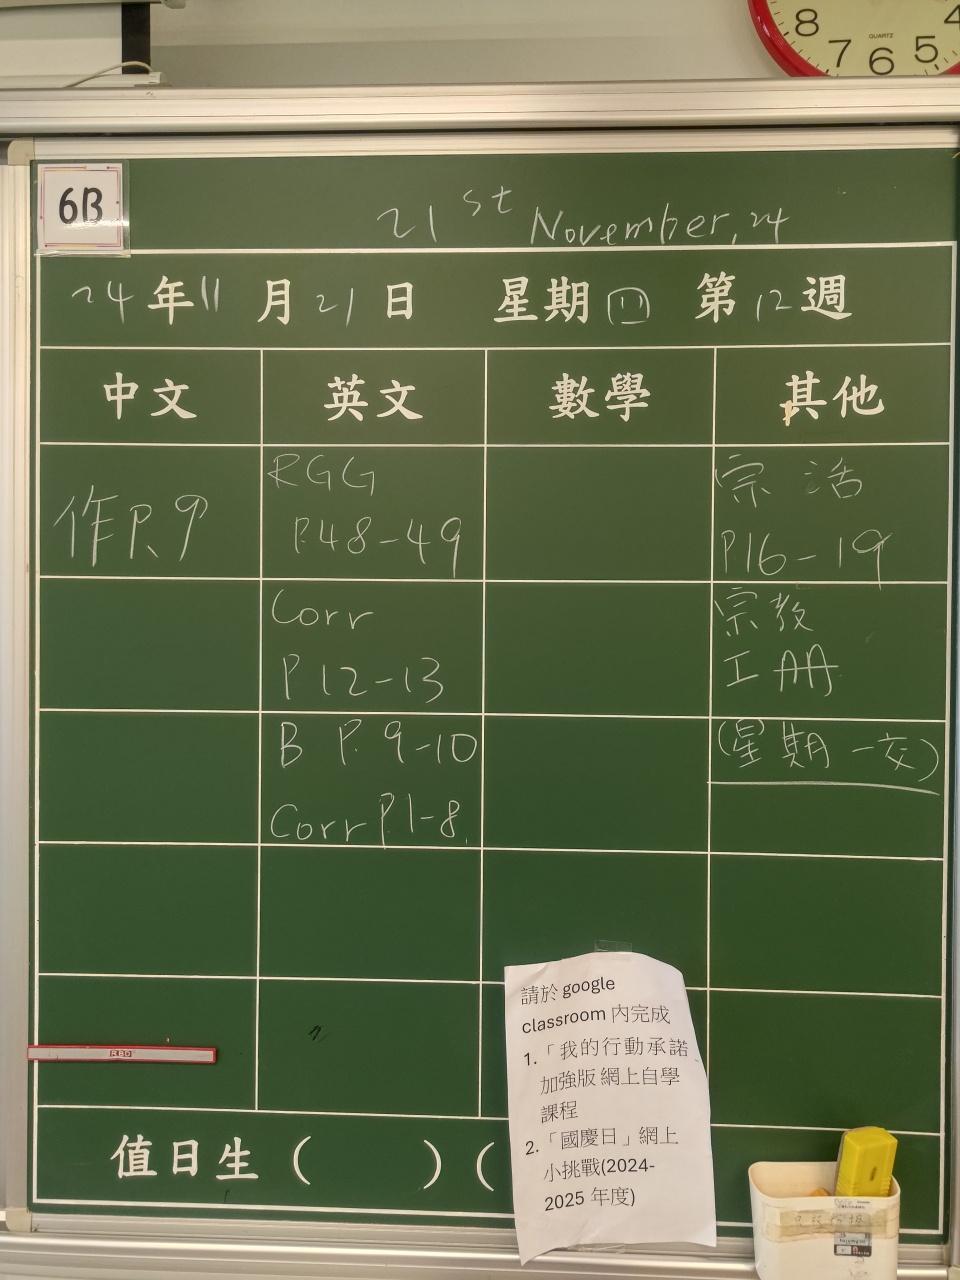 8 7 6 5 4
QUARTZ
6B
21st November, 24
24年11月21日 星期四 第12週
中文 英文 數學 其他
作P.9
RGG
P.48-49
Corr
P 12-13
B P. 9-10
Corr P.1-8
宗 活
P16-19
宗教
工冊
(星期一交)
RBD
值日生( )(
請於 google
classroom 內完成
1.「我的行動承諾
加強版 網上自學
課程
2.「國慶日」網上
小挑戰(2024-
2025 年度)